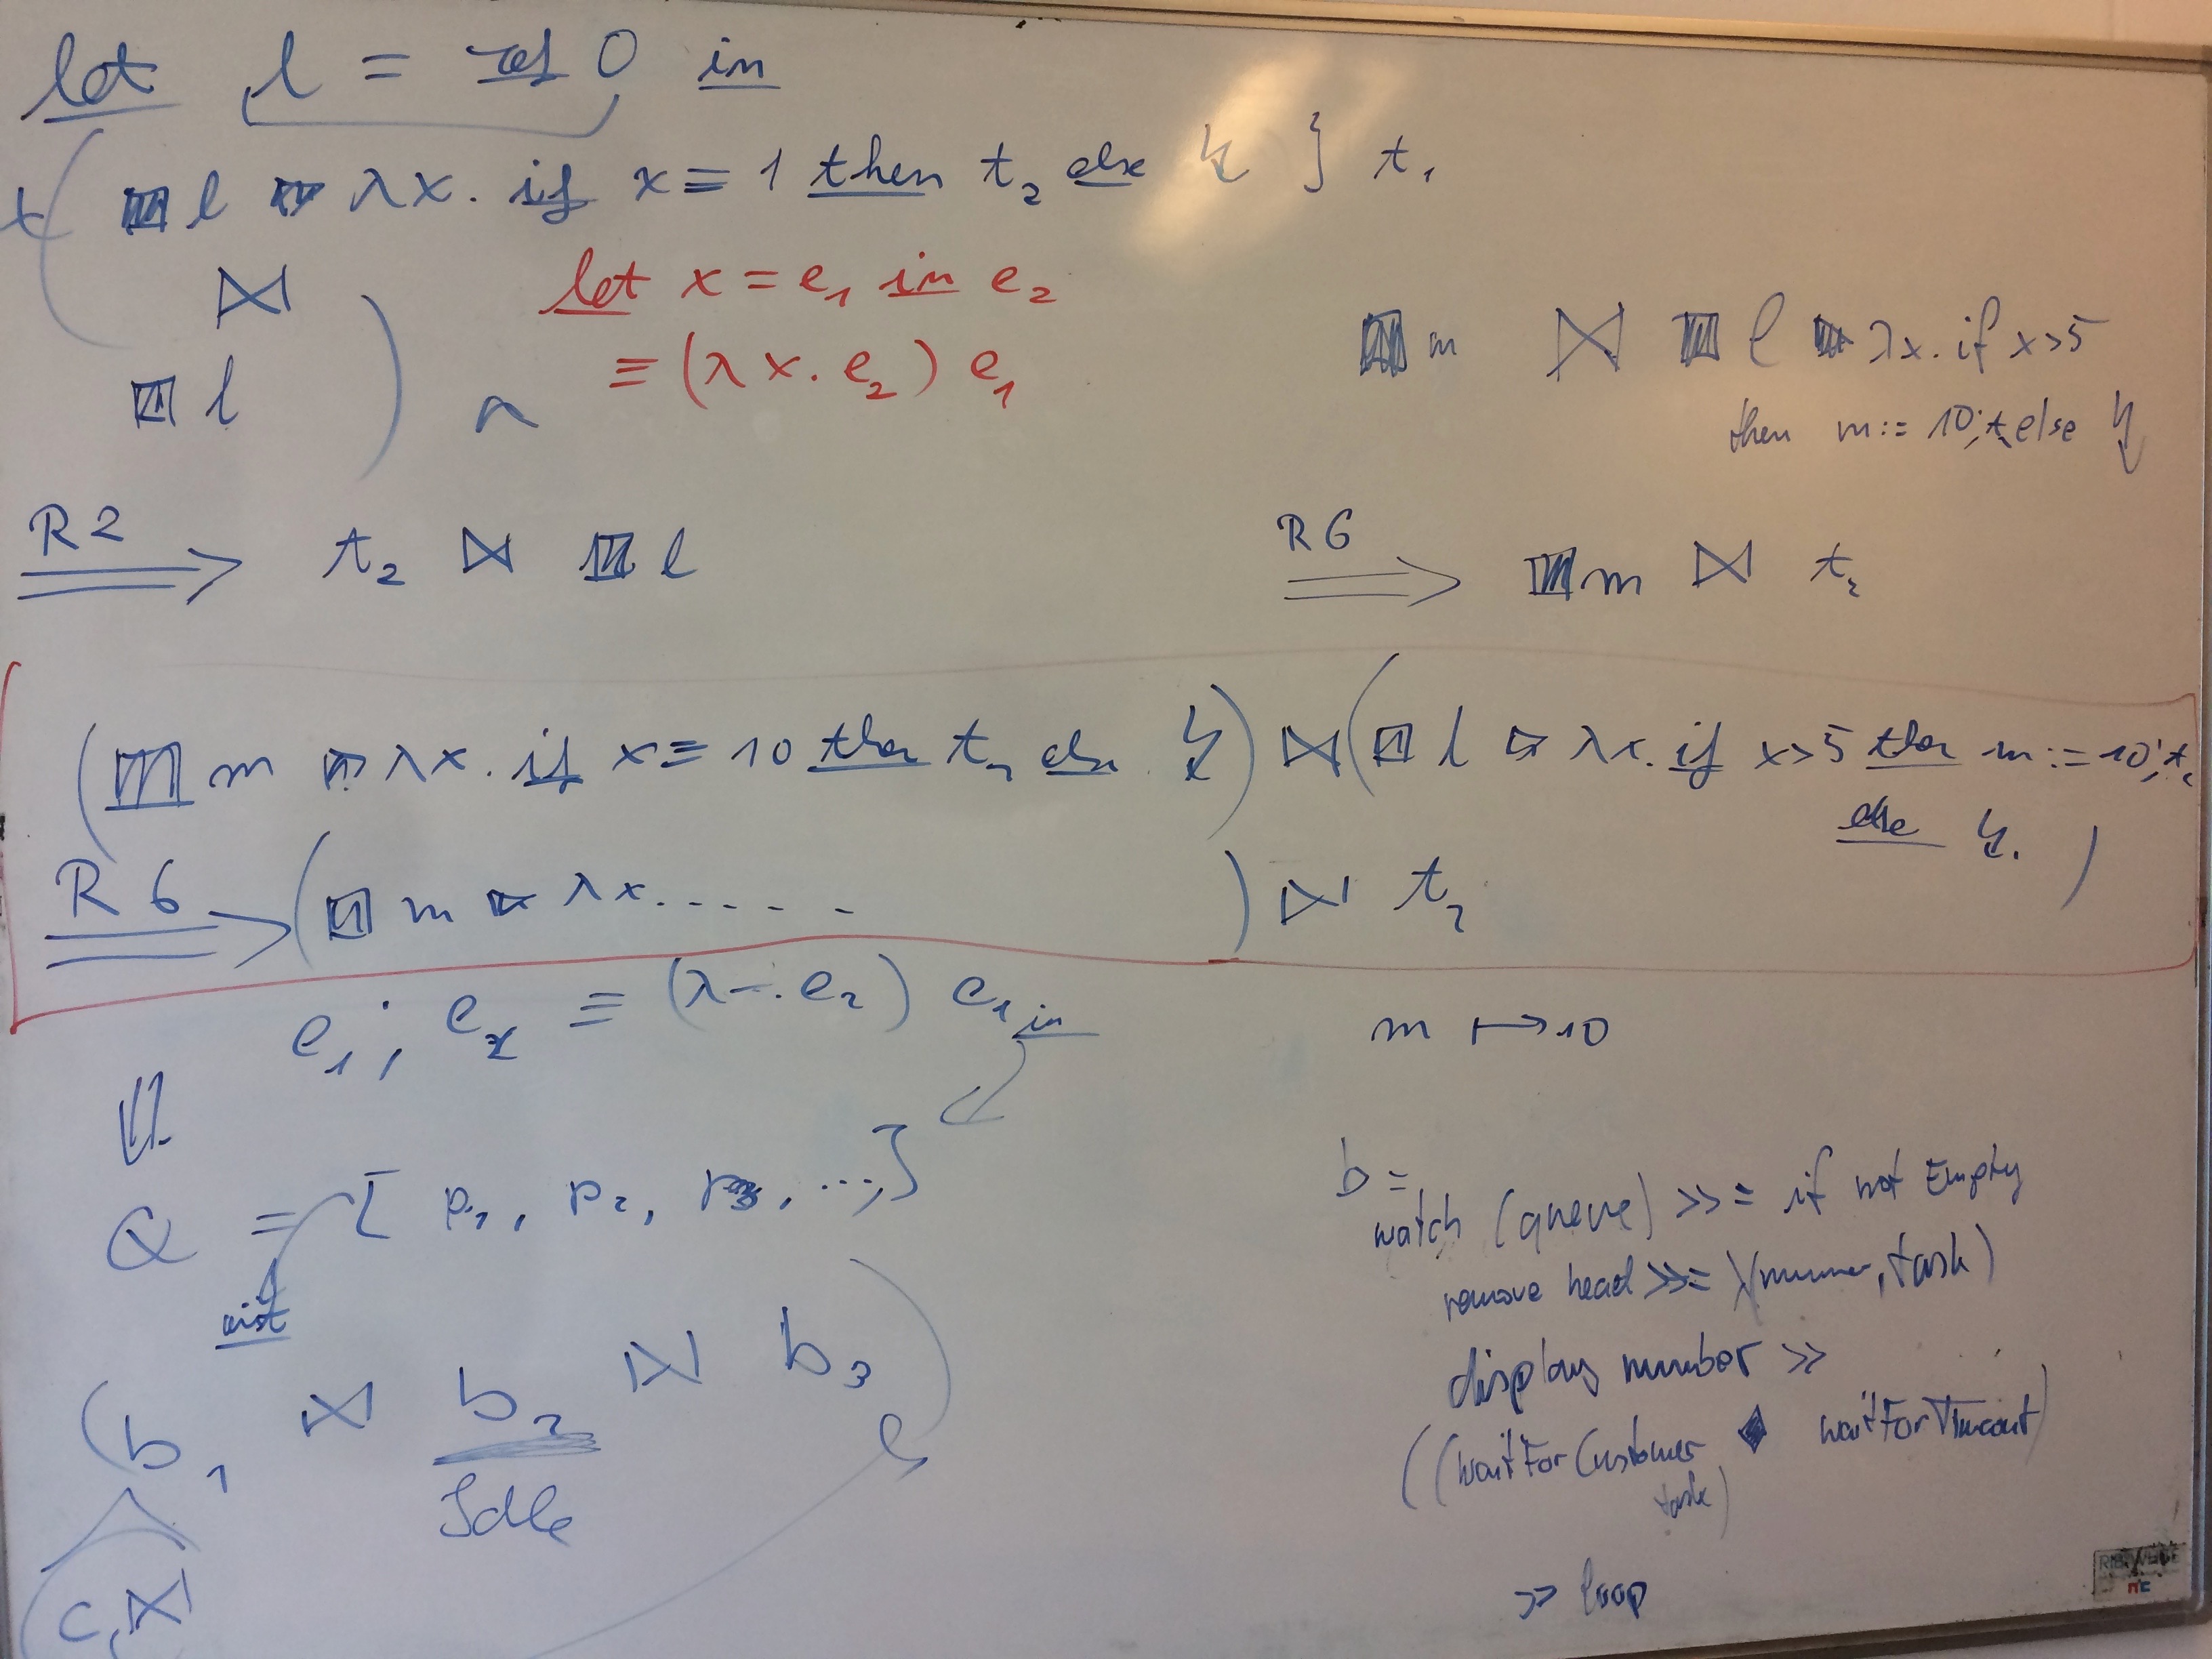 let l = ref 0 in
t ( ▥ l ▷ λx. if x ≡ 1 then t₂ else ↯ } t₁
⋈
▥ l )
let x = e₁ in e₂
≡ (λx. e₂) e₁
▥ m ⋈ ▥ l ▷ λx. if x>5
then m := 10; t₂ else ↯
R2 ⟹ t₂ ⋈ ▥ l
R6 ⟹ ▥ m ⋈ t₂
( ▥ m ▷ λx. if x ≡ 10 then t₂ else ↯ ) ⋈ ( ▥ l ▷ λx. if x>5 then m := 10; t₂
else ↯. )
R6 ⟹ ( ▥ m ▷ λx. . . . . . ) ⋈ t₂
e₁; e₂ ≡ (λ_. e₂) e₁ in
m ↦ 10
Q = [ p₁, p₂, p₃, ..., ]
( b₁ ⋈ b₂ ⋈ b₃ )
Idle
b =
watch (queue) >>= if not Empty
remove head >>= \(number, task)
display number >>
((waitForCustomer ◆ waitForTimeout)
task)
>> loop